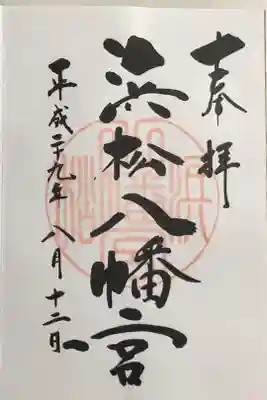 奉拝
浜松八幡宮
平成二十九年八月十二日